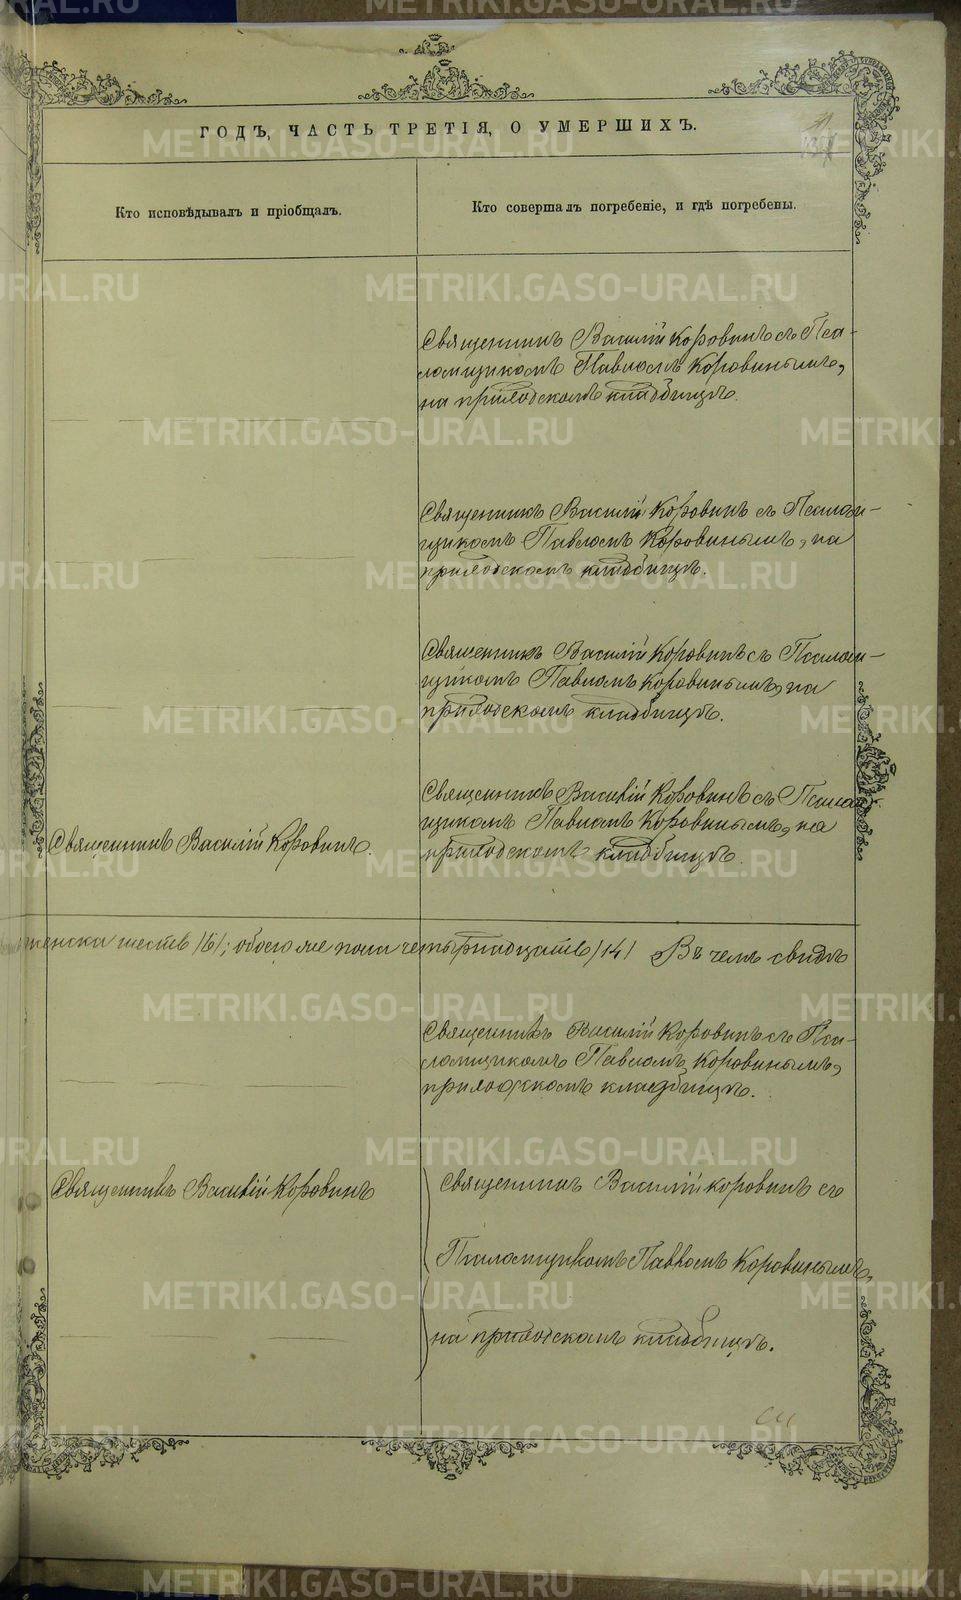 ГОДЪ, ЧАСТЬ ТРЕТІЯ, О УМЕРШИХЪ.
31
Кто исповѣдывалъ и пріобщалъ.
Кто совершалъ погребеніе, и гдѣ погребены.
Священникъ Василій Коровинъ съ Пса-
ломщикомъ Павломъ Коровинымъ,
на приходскомъ кладбищѣ.
Священникъ Василій Коровинъ съ Псалом-
щикомъ Павломъ Коровинымъ, на
приходскомъ кладбищѣ.
Священникъ Василій Коровинъ съ Псалом-
щикомъ Павломъ Коровинымъ, на
приходскомъ кладбищѣ.
Священникъ Василій Коровинъ съ Псалом-
щикомъ Павломъ Коровинымъ, на
приходскомъ кладбищѣ.
Священникъ Василій Коровинъ.
женска шесть /6/; обоего же пола четырнадцать /14/ Въ чемъ свидѣ
Священникъ Василій Коровинъ съ Пса-
ломщикомъ Павломъ Коровинымъ,
приходскомъ кладбищѣ.
Священникъ Василій Коровинъ
Священникъ Василій Коровинъ съ
Псаломщикомъ Павломъ Коровинымъ,
на приходскомъ кладбищѣ.
METRIKI.GASO-URAL.RU